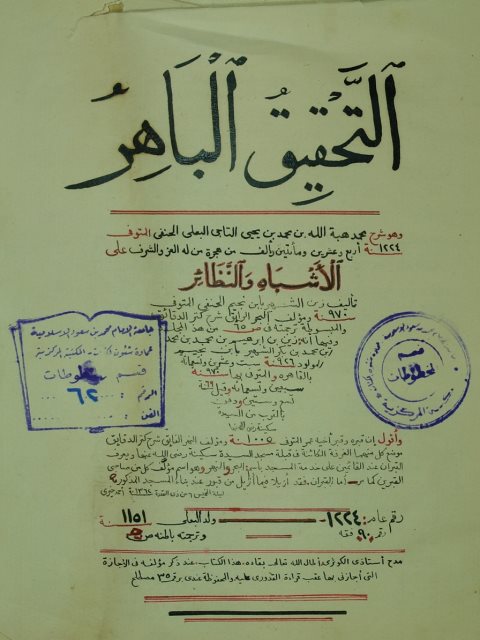 التَّحقِيقُ الْبَاهِرُ
وهو شرح محمد هبة الله بن محمد بن يحيى التاجى البعلى الحنفى المتوفى
١٢٢٤ سنة أربع وعشرين ومأتين وألف من هجرة من له العز والشرف على
الْأَشْبَاهِ وَالنَّظَائِرِ
تأليف زين الشهير بابن نجيم الحنفى المتوفى
٩٧٠ سنة ومؤلف البحر الرائق شرح كنز الدقائق
ترجمته فى ص ٦٥ من هذا
وفيها أنه زين بن إبراهيم بن محمد بن محمد
بن محمد بن بكر الشهير بابن نجيم
المولود ٩٢٦ سنة ست وعشرين وتسعمائة
بالقاهرة والمتوفى بها ٩٧٠ سنة
سبعين وتسعمائة وقيل ٩٦٩
تسع وستين ودفن
بالقرب من السيدة
سكينة
وأقول إن قبره وقبر أخيه عمر المتوفى ١٠٠٥ سنة ومؤلف النهر الفائق شرح كنز الدقائق
موضع كل منهما الغرفة الكائنة فى قبلة مسجد السيدة سكينة رضى الله عنها ويعرف
القبران عند القائمين على خدمة المسجد باسم: البحر والنهر وهو اسم مؤلف كل من صاحبى
القبرين كما مر أما القبران فقد أزيلا فيما أزيل من قبور عند بناء المسجد المذكور
ليلة الخميس ٦ من ذى القعدة ١٣٦٢ أحمد خيرى
رقم عام: ١٢٢٤ ولد البعلى ١١٥١ سنة
رقم ٩٠ فقه وترجمته بالمنه ص
مدح أستاذى الكوثرى أطال الله تعالى بقاءه، هذا الكتاب عند ذكر مؤلفه فى الإجازة
التى أجازنى بها عقب قراءة القدورى عليه والمحفوظة عندى برقم ٣٥ مصطلح
جامعة الإمام محمد بن سعود الإسلامية
عمادة شئون المكتبات المكتبة المركزية
قسم المخطوطات
الرقم: ٦٢
الفن:
قسم
المخطوطات
المركزية